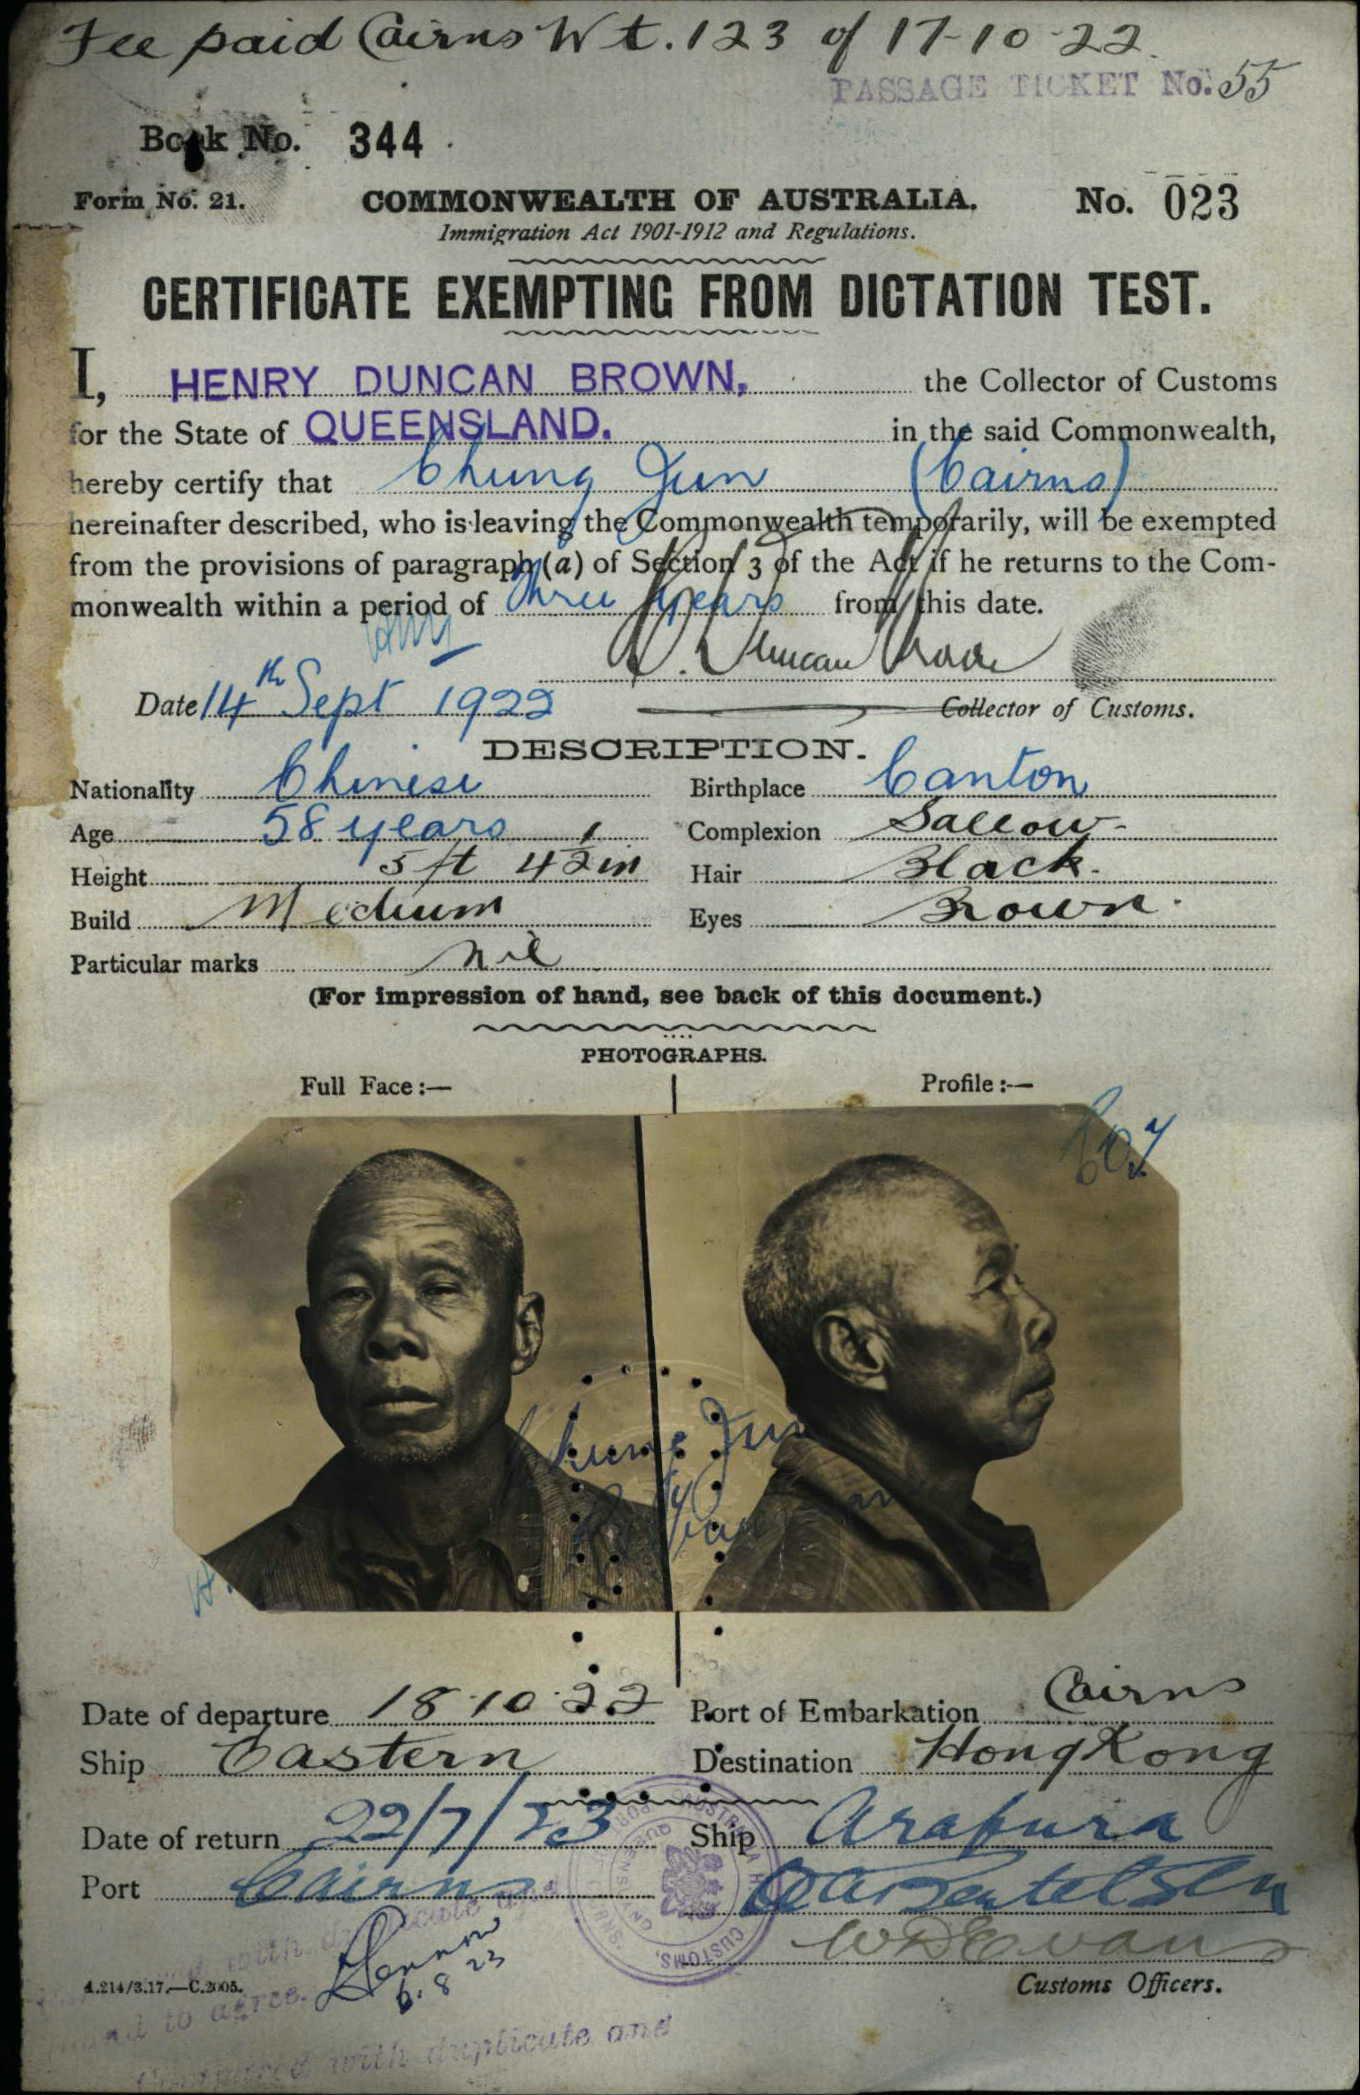 Fee paid Cairns Wt. 123 of 17-10-22
PASSAGE TICKET No. 55
Book No. 344
Form No. 21. COMMONWEALTH OF AUSTRALIA. No. 023
Immigration Act 1901-1912 and Regulations.
CERTIFICATE EXEMPTING FROM DICTATION TEST.
I, HENRY DUNCAN BROWN, the Collector of Customs
for the State of QUEENSLAND. in the said Commonwealth,
hereby certify that Chung Jun (Cairns)
hereinafter described, who is leaving the Commonwealth temporarily, will be exempted
from the provisions of paragraph (a) of Section 3 of the Act if he returns to the Com-
monwealth within a period of three years from this date.
Date 14th Sept 1922 Collector of Customs.
DESCRIPTION.
Nationality Chinese Birthplace Canton
Age 58 years Complexion Sallow-
Height 5 ft 4½ in Hair Black.
Build Medium Eyes Brown.
Particular marks nil
(For impression of hand, see back of this document.)
PHOTOGRAPHS.
Full Face:— Profile:—
Chung Jun
Date of departure 18.10.22 Port of Embarkation Cairns
Ship Eastern Destination Hong Kong
Date of return 22/7/23 Ship Arafura
Port Cairns
CUSTOMS,
W D Evans
A.214/3.17.—C.2005.
6.8.23
Customs Officers.
to agree.
Compared with duplicate and